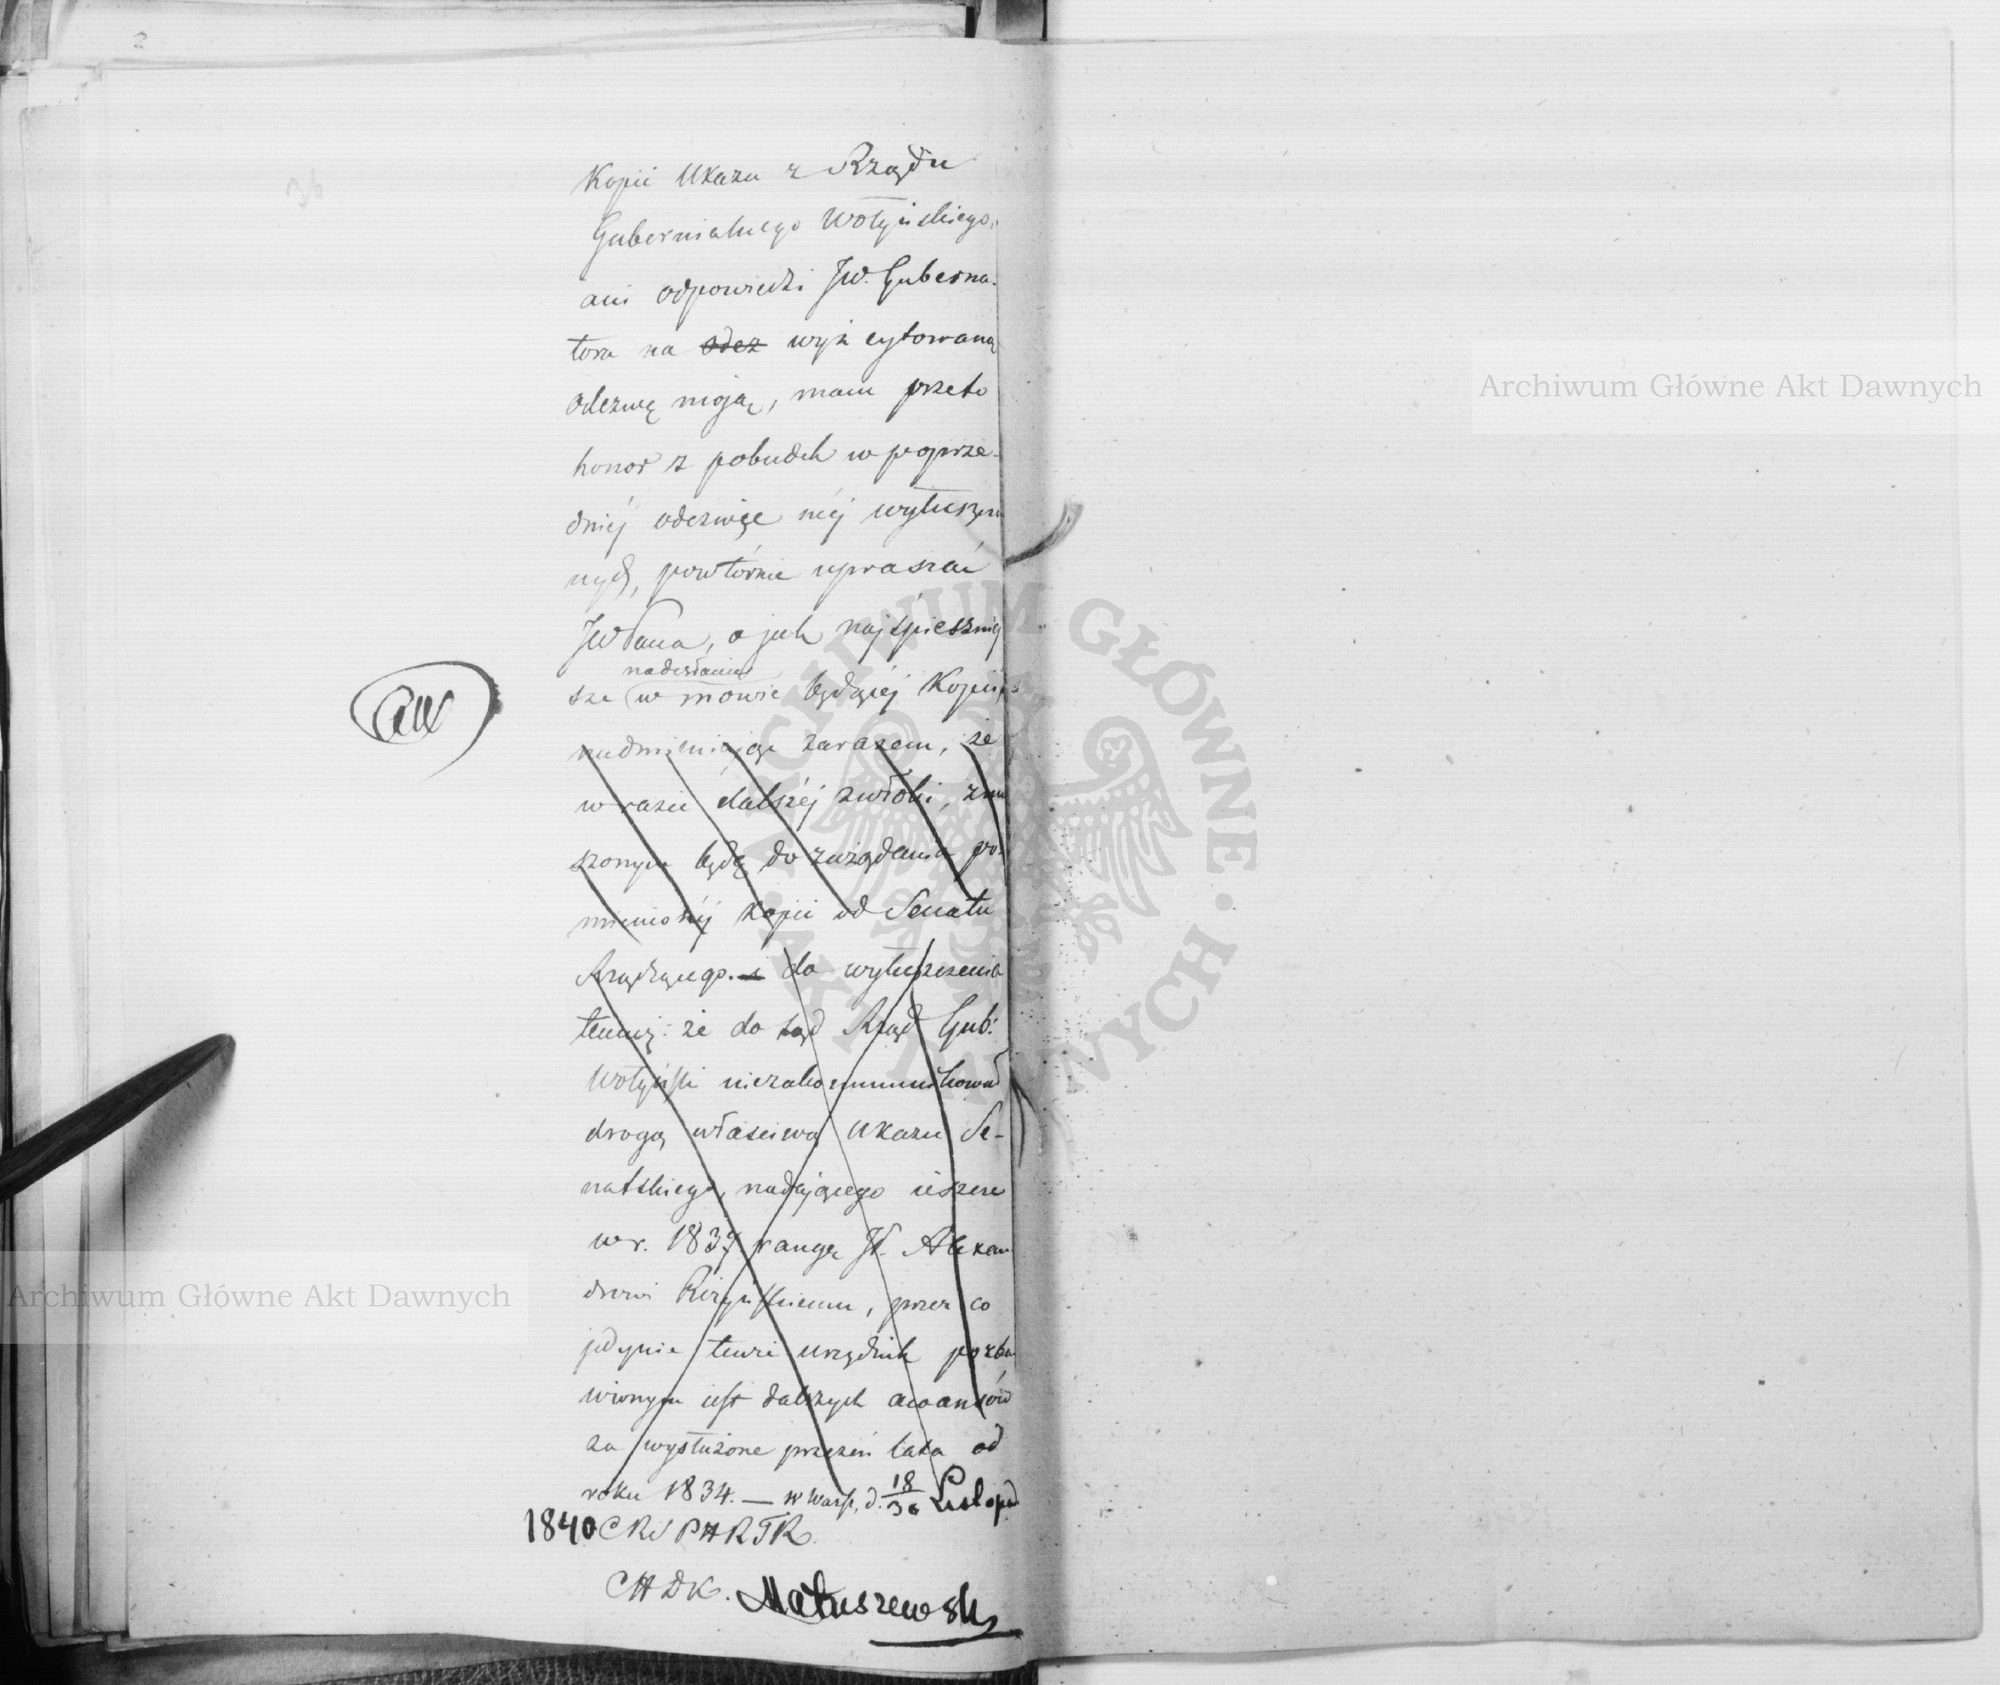 Kopii Ukazu z Rządu
Gubernialnego Wołyńskiego,
ani odpowiedzi JW. Guberna-
tora na odez wyż cytowaną
odezwę moją, mam przeto
honor z pobudek w poprze-
dniéj odezwie méj wyłuszczo
nych, powtórnie upraszać
JWPana, o jak najspieszniej
nadesłanie
sze w mowie będącéj Kopii,
nadmieniając zarazem, że
w razie dalszéj zwłoki, zmu
szonym będę do zażądania po-
mienionéj Kopii od Senatu
Rządzącego. i do wyłuszczenia
temuż: że do tąd Rząd Gub:
Wołyński niezakommunikował
drogą właściwą Ukazu Se-
natskiego, nadającego ieszcze
w r. 1837 rangę JP. Alexan
drowi Rożyńskiemu, przez co
jedynie tenże urzędnik pozba
wionym iest dalszych awansów
za wysłużone przezeń lata od
roku 1834. — w Warsz, d. 18/30 Listopad
1840 CRSPHRTR.
CHDK. Matuszewski
Archiwum Główne Akt Dawnych
Archiwum Główne Akt Dawnych
ARCHIWUM GŁÓWNE · AKT DAWNYCH ·